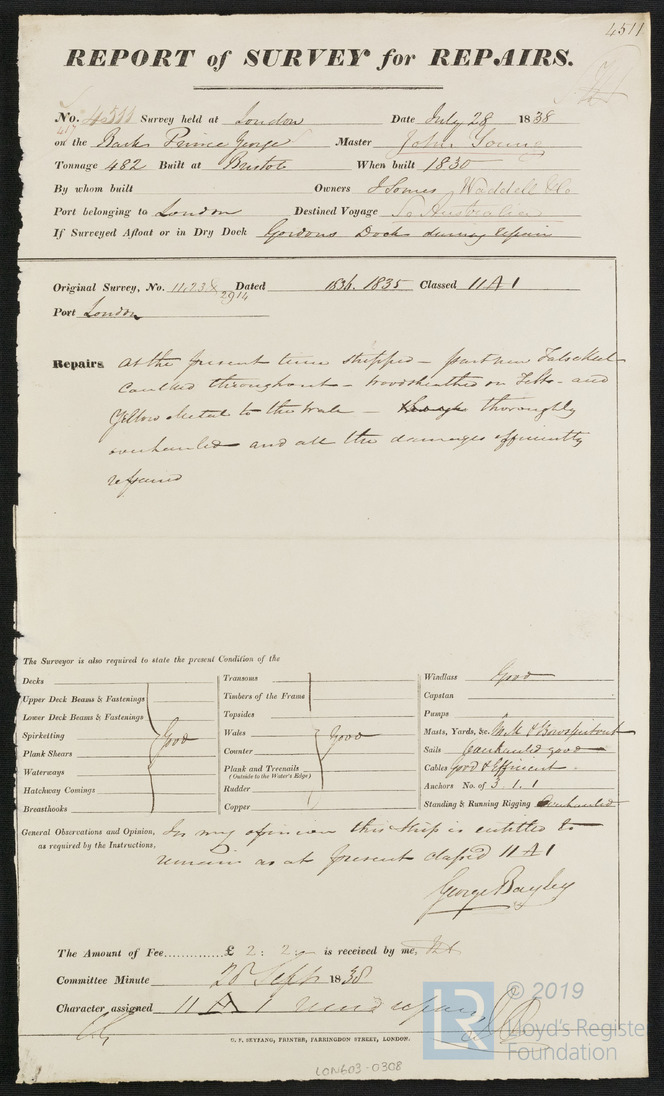 4511
REPORT of SURVEY for REPAIRS.
No. 4511 Survey held at London Date July 28 1838
417
on the Bark Prince George Master John Young
Tonnage 482 Built at Bristol When built 1830
By whom built Owners J Somes Waddell & Co
Port belonging to London Destined Voyage To Australia
If Surveyed Afloat or in Dry Dock Gordons Dock during repair
Original Survey, No. 1123 2914 Dated 1834. 1835 Classed 11 A 1
Port London
Repairs At the present time stripped – part new False Keel
Caulked throughout – woodsheathed on Felt – and
Yellow Metal to the wale – thoroughly
overhauled and all the damages efficiently
repaired
The Surveyor is also required to state the present Condition of the
Decks
Upper Deck Beams & Fastenings
Lower Deck Beams & Fastenings
Spirketting Good
Plank Shears
Waterways
Hatchway Comings
Breasthooks
Transoms
Timbers of the Frame
Topsides
Wales Good
Counter
Plank and Treenails
(Outside to the Water's Edge)
Rudder
Copper
Windlass Good
Capstan
Pumps
Masts, Yards, &c. & Bowsprit out
Sails Overhauled good
Cables Good & Efficient
Anchors No. of 3. 1. 1
Standing & Running Rigging Overhauled
General Observations and Opinion, In my opinion this ship is entitled to
as required by the Instructions, remain as at present classed 11 A 1
George Bayley
The Amount of Fee.............£ 2: 2 is received by me,
Committee Minute 28 Septr 1838
Character assigned 11 A 1 repairs
C. F. SEYFANG, PRINTER, FARRINGDON STREET, LONDON.
LON603-0308
LR
© 2019
Lloyd's Register
Foundation